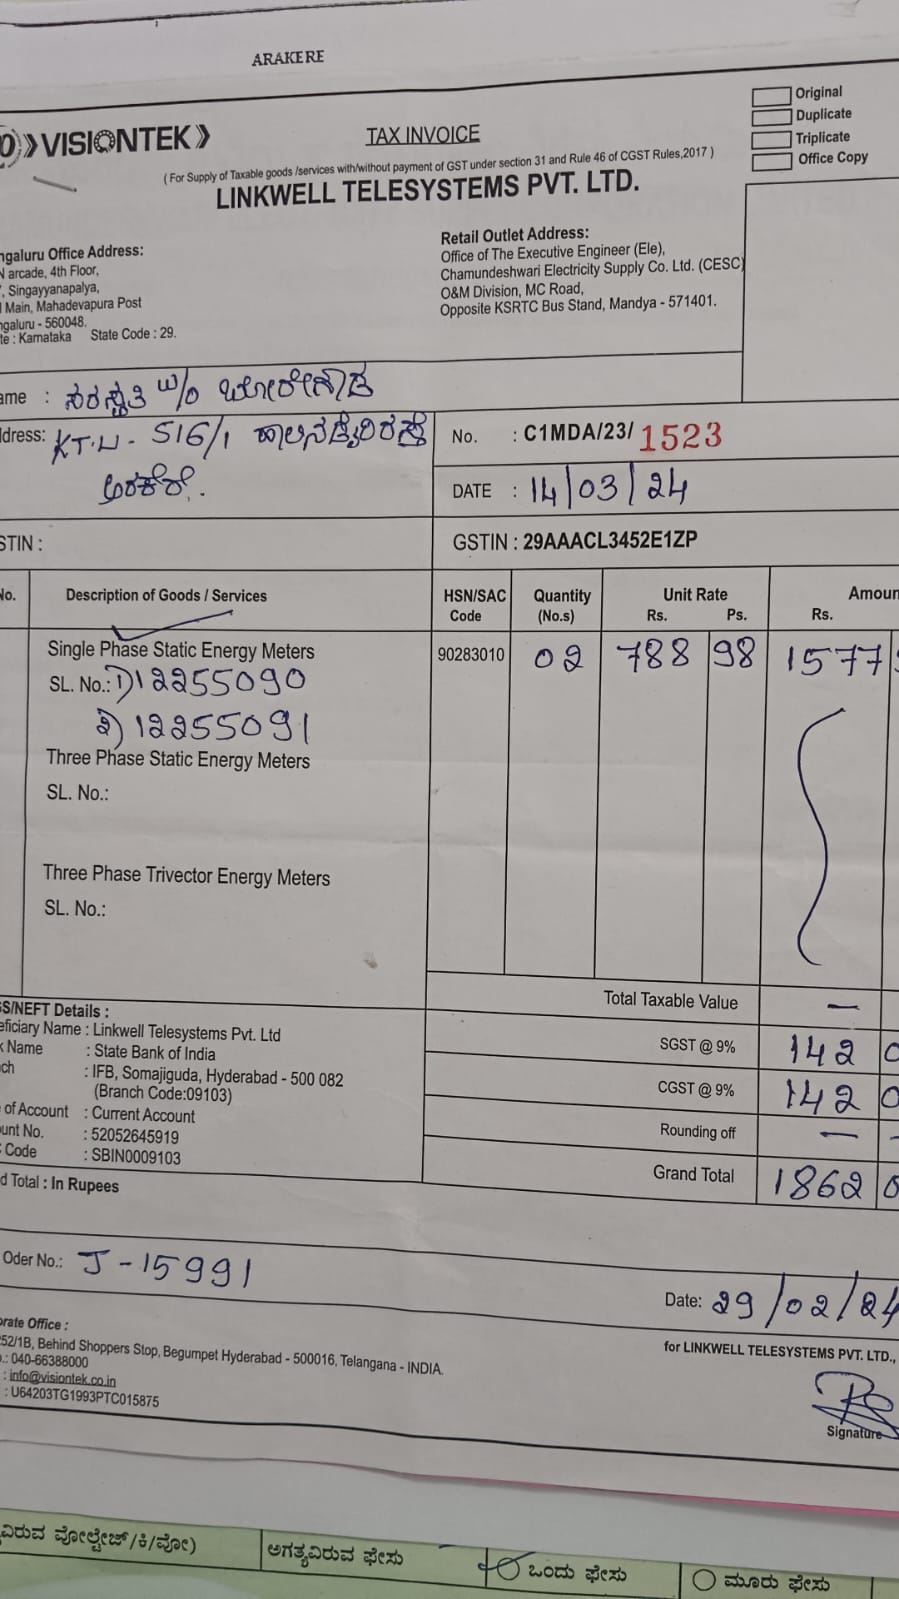 ARAKERE
Original
Duplicate
Triplicate
Office Copy
VISIONTEK
TAX INVOICE
( For Supply of Taxable goods /services with/without payment of GST under section 31 and Rule 46 of CGST Rules,2017 )
LINKWELL TELESYSTEMS PVT. LTD.
ngaluru Office Address:
N arcade, 4th Floor,
, Singayyanapalya,
Main, Mahadevapura Post
ngaluru - 560048.
te : Karnataka State Code : 29.
Retail Outlet Address:
Office of The Executive Engineer (Ele),
Chamundeshwari Electricity Supply Co. Ltd. (CESC)
O&M Division, MC Road,
Opposite KSRTC Bus Stand, Mandya - 571401.
ame : ಸರಸ್ವತಿ w/o ಬೋರೇಗೌಡ
dress: KT.U - 516/1
ಅರಕೆರೆ.
No. : C1MDA/23/ 1523
DATE : 14/03/24
STIN :
GSTIN : 29AAACL3452E1ZP
No. Description of Goods / Services HSN/SAC Code Quantity (No.s) Unit Rate Rs. Ps. Amoun Rs.
Single Phase Static Energy Meters 90283010 02 788 98 1577
SL. No.: 1) 12255090
2) 12255091
Three Phase Static Energy Meters
SL. No.:
Three Phase Trivector Energy Meters
SL. No.:
Total Taxable Value —
SGST @ 9% 142 0
CGST @ 9% 142 0
Rounding off —
Grand Total 1862 0
S/NEFT Details :
eficiary Name : Linkwell Telesystems Pvt. Ltd
k Name : State Bank of India
ch : IFB, Somajiguda, Hyderabad - 500 082
(Branch Code:09103)
e of Account : Current Account
unt No. : 52052645919
Code : SBIN0009103
d Total : In Rupees
Oder No.: J - 15991
Date: 29/02/24
orate Office :
252/1B, Behind Shoppers Stop, Begumpet Hyderabad - 500016, Telangana - INDIA.
.: 040-66388000
: info@visiontek.co.in
: U64203TG1993PTC015875
for LINKWELL TELESYSTEMS PVT. LTD.,
Signature
ವಿರುವ ವೋಲ್ಟೇಜ್/ಕಿ/ವೋ)
ಅಗತ್ಯವಿರುವ ಫೇಸು
ಒಂದು ಫೇಸು
ಮೂರು ಫೇಸು